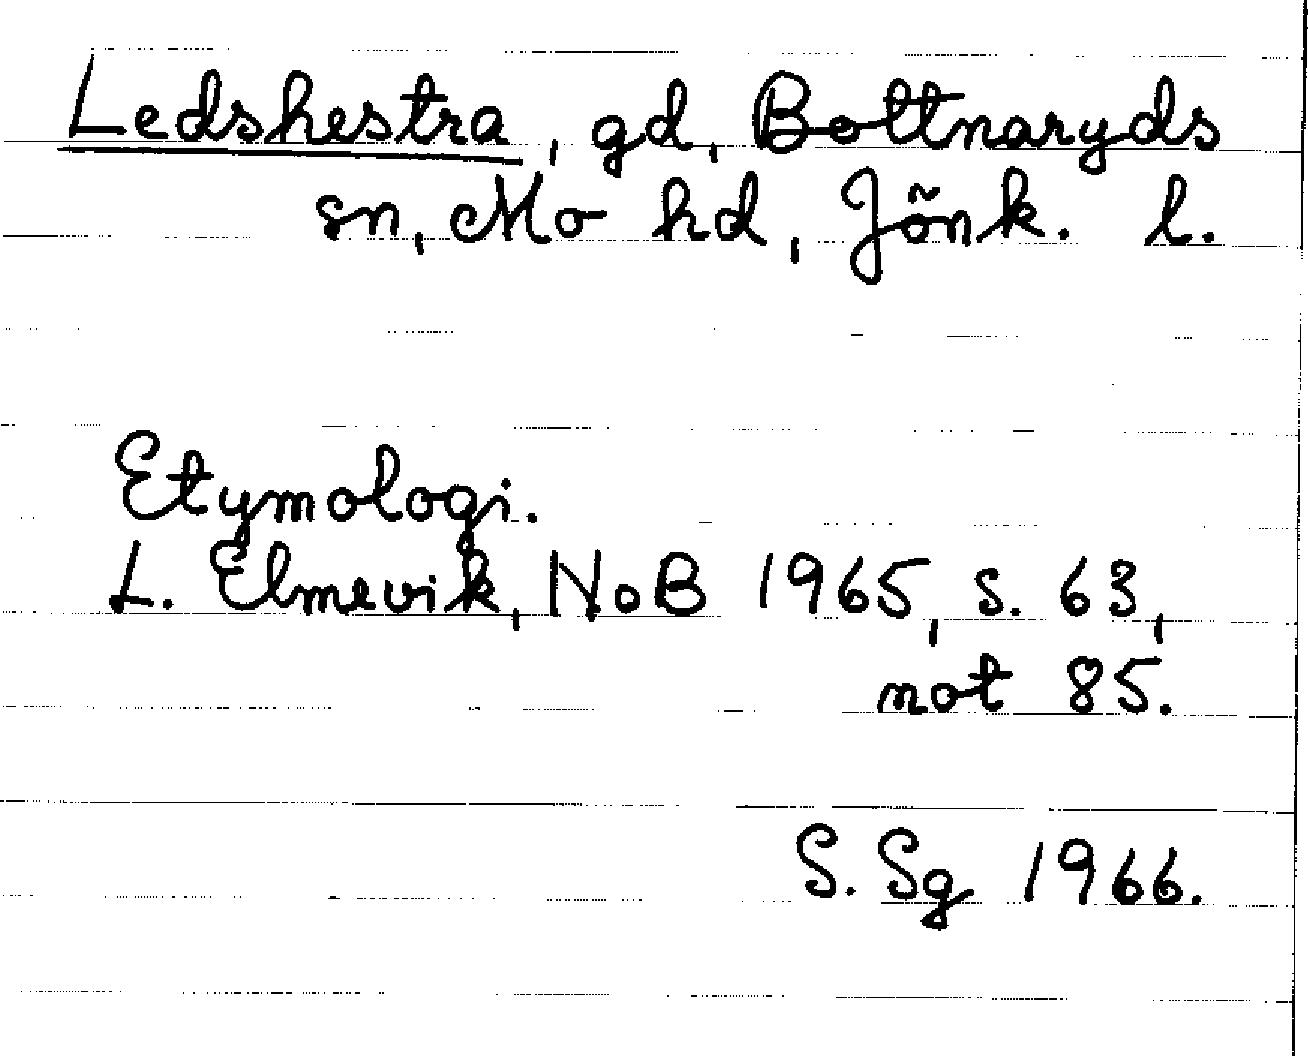 Ledshestra, gd, Bottnaryds
sn, Mo hd, Jönk. l.
Etymologi.
L. Elmevik, NoB 1965, s. 63,
not 85.
S. Sg 1966.